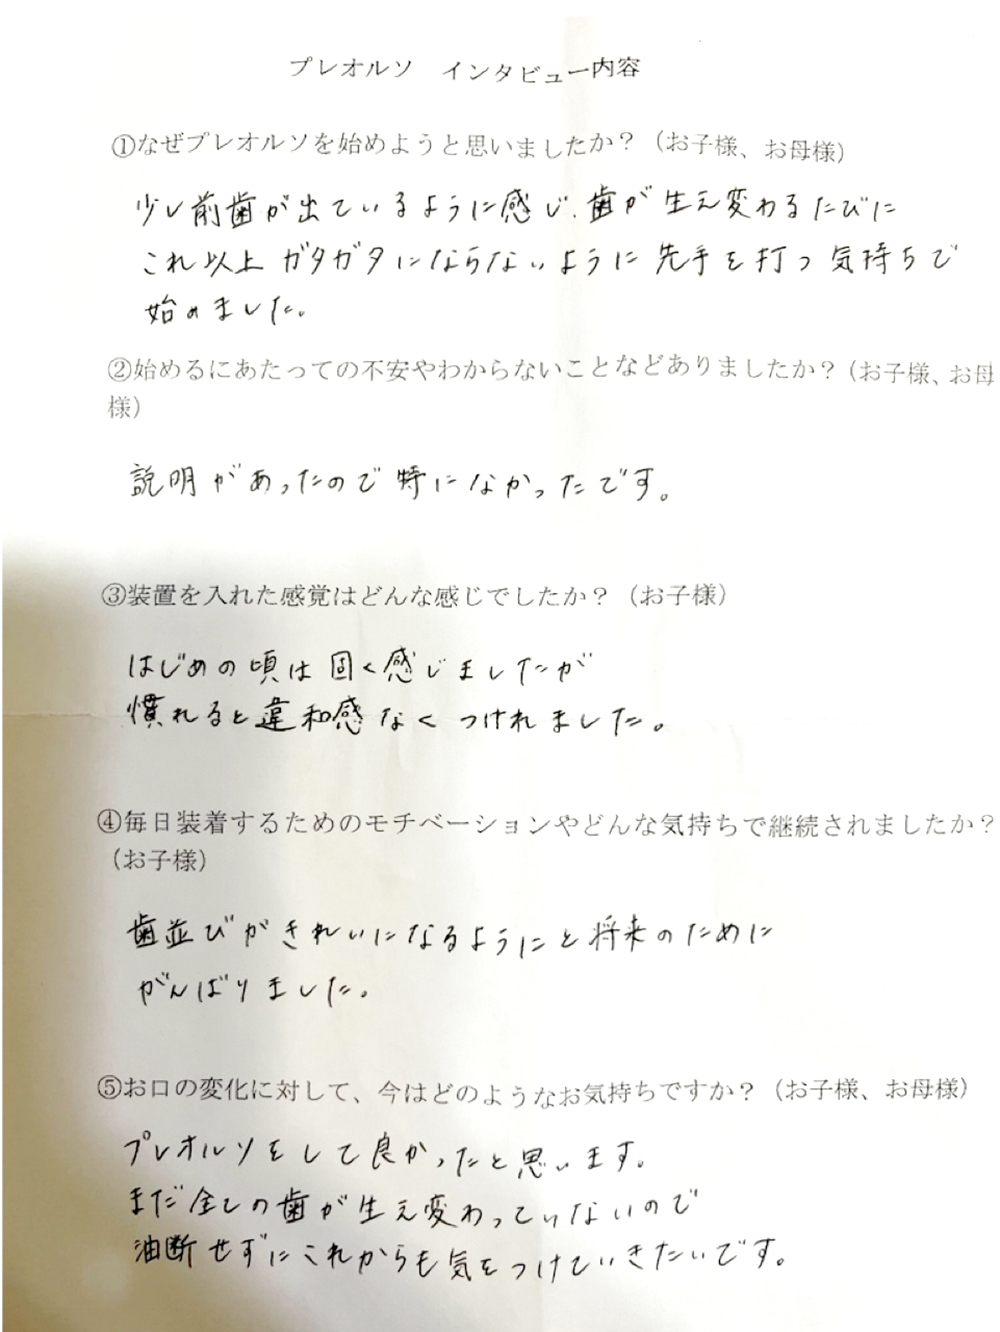 プレオルソ　インタビュー内容
①なぜプレオルソを始めようと思いましたか？（お子様、お母様）
少し前歯が出ているように感じ、歯が生え変わるたびに
これ以上ガタガタにならないように先手を打つ気持ちで
始めました。
②始めるにあたっての不安やわからないことなどありましたか？（お子様、お母
様）
説明があったので特になかったです。
③装置を入れた感覚はどんな感じでしたか？（お子様）
はじめの頃は固く感じましたが
慣れると違和感なくつけれました。
④毎日装着するためのモチベーションやどんな気持ちで継続されましたか？
（お子様）
歯並びがきれいになるようにと将来のために
がんばりました。
⑤お口の変化に対して、今はどのようなお気持ちですか？（お子様、お母様）
プレオルソをして良かったと思います。
まだ全ての歯が生え変わっていないので
油断せずにこれからも気をつけていきたいです。